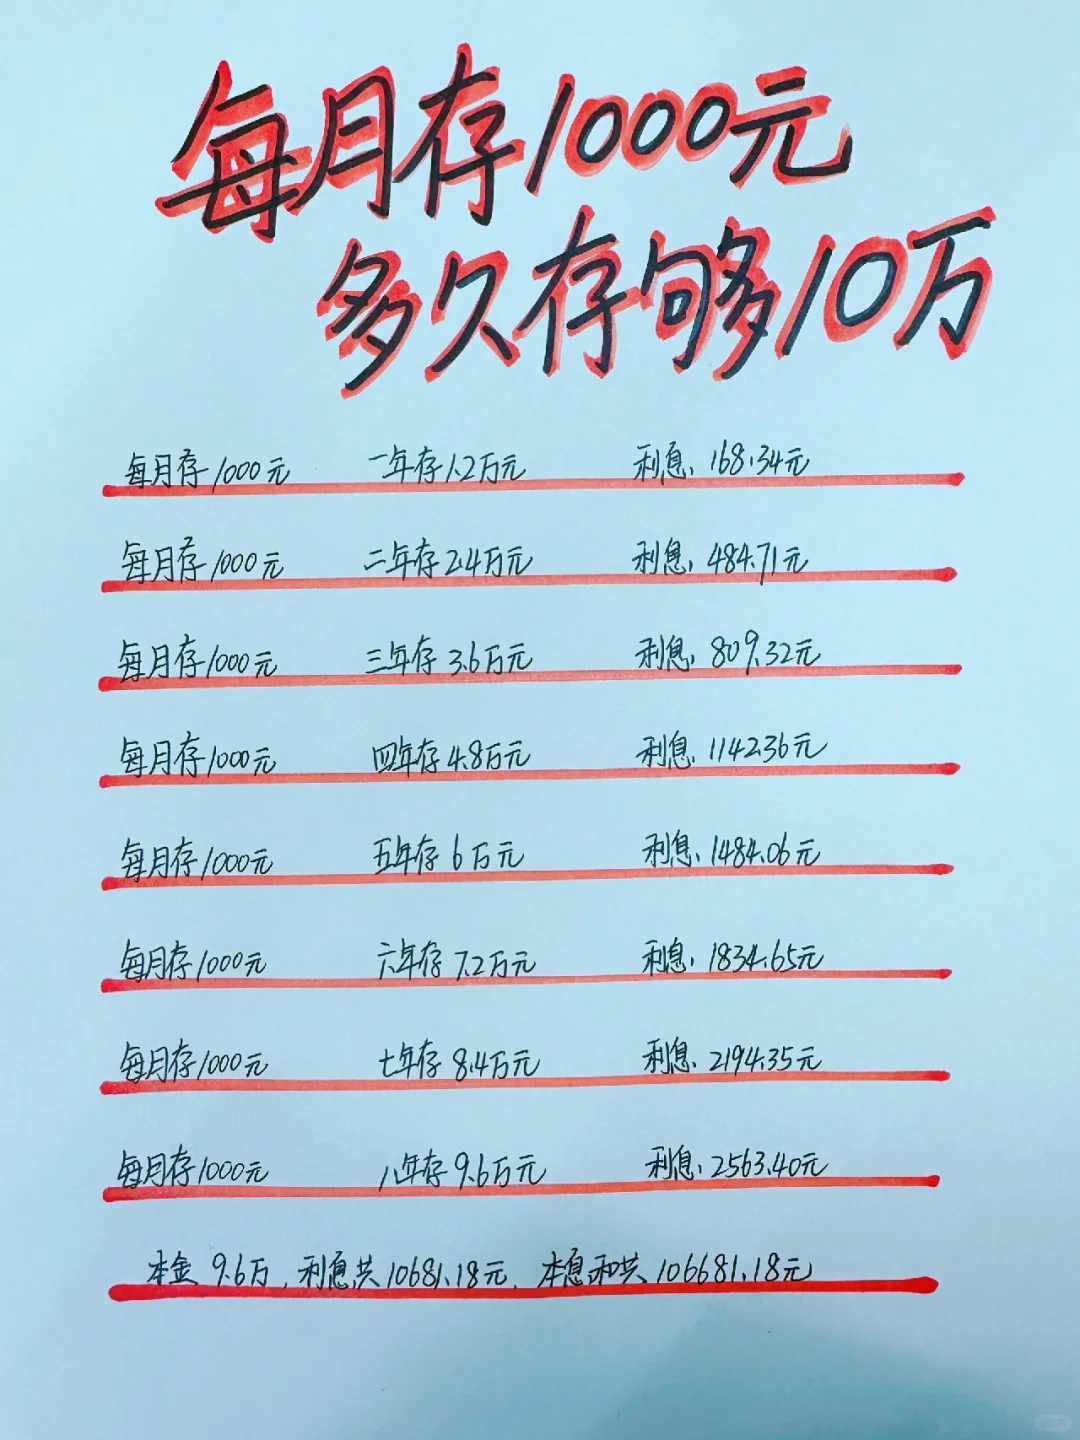 每月存1000元
多久存够10万
每月存1000元 一年存1.2万元 利息:168.34元
每月存1000元 二年存2.4万元 利息:484.71元
每月存1000元 三年存3.6万元 利息:809.32元
每月存1000元 四年存4.8万元 利息:1142.36元
每月存1000元 五年存6万元 利息:1484.06元
每月存1000元 六年存7.2万元 利息:1834.65元
每月存1000元 七年存8.4万元 利息:2194.35元
每月存1000元 八年存9.6万元 利息:2563.40元
本金9.6万,利息共10681.18元,本息和共106681.18元